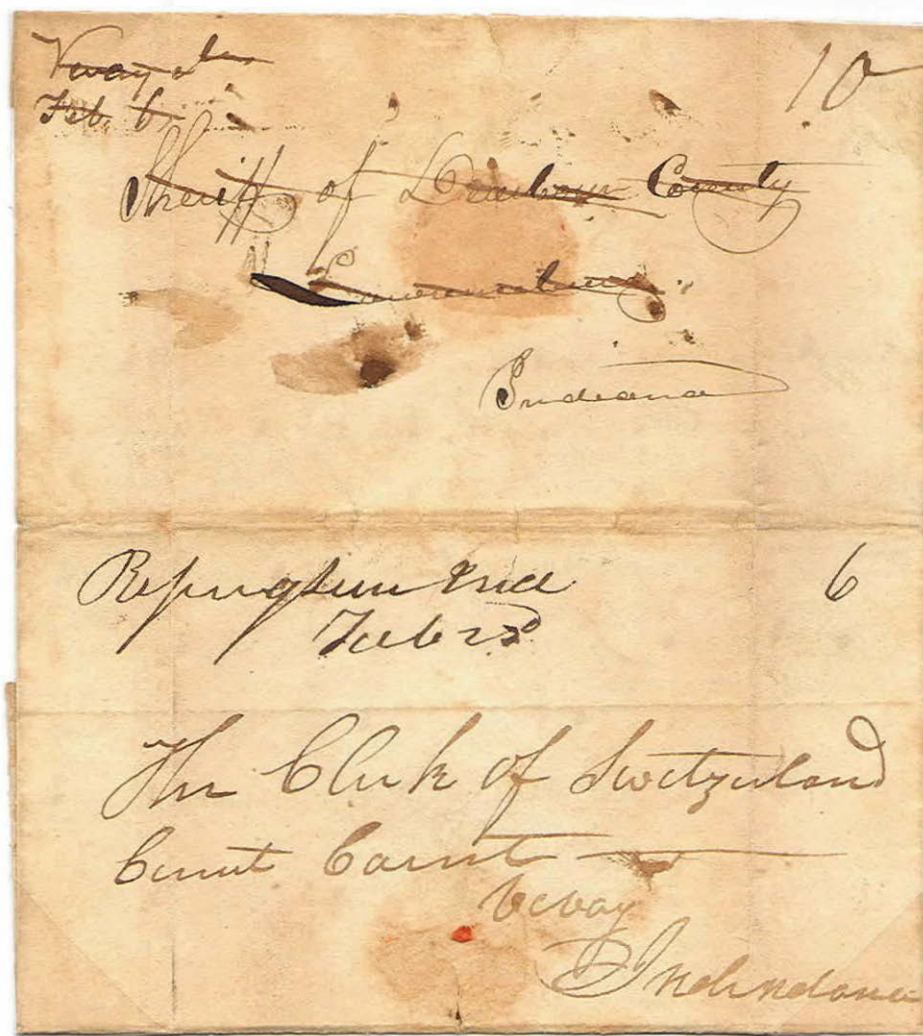 Vevay Ia
Feb. 6
10
Sheriff of Dearborn County
Lawrenceburg
Indiana
Rising Sun Ind
6
Feb 25
The Clerk of Switzerland
Circuit Court
Vevay
Indindana